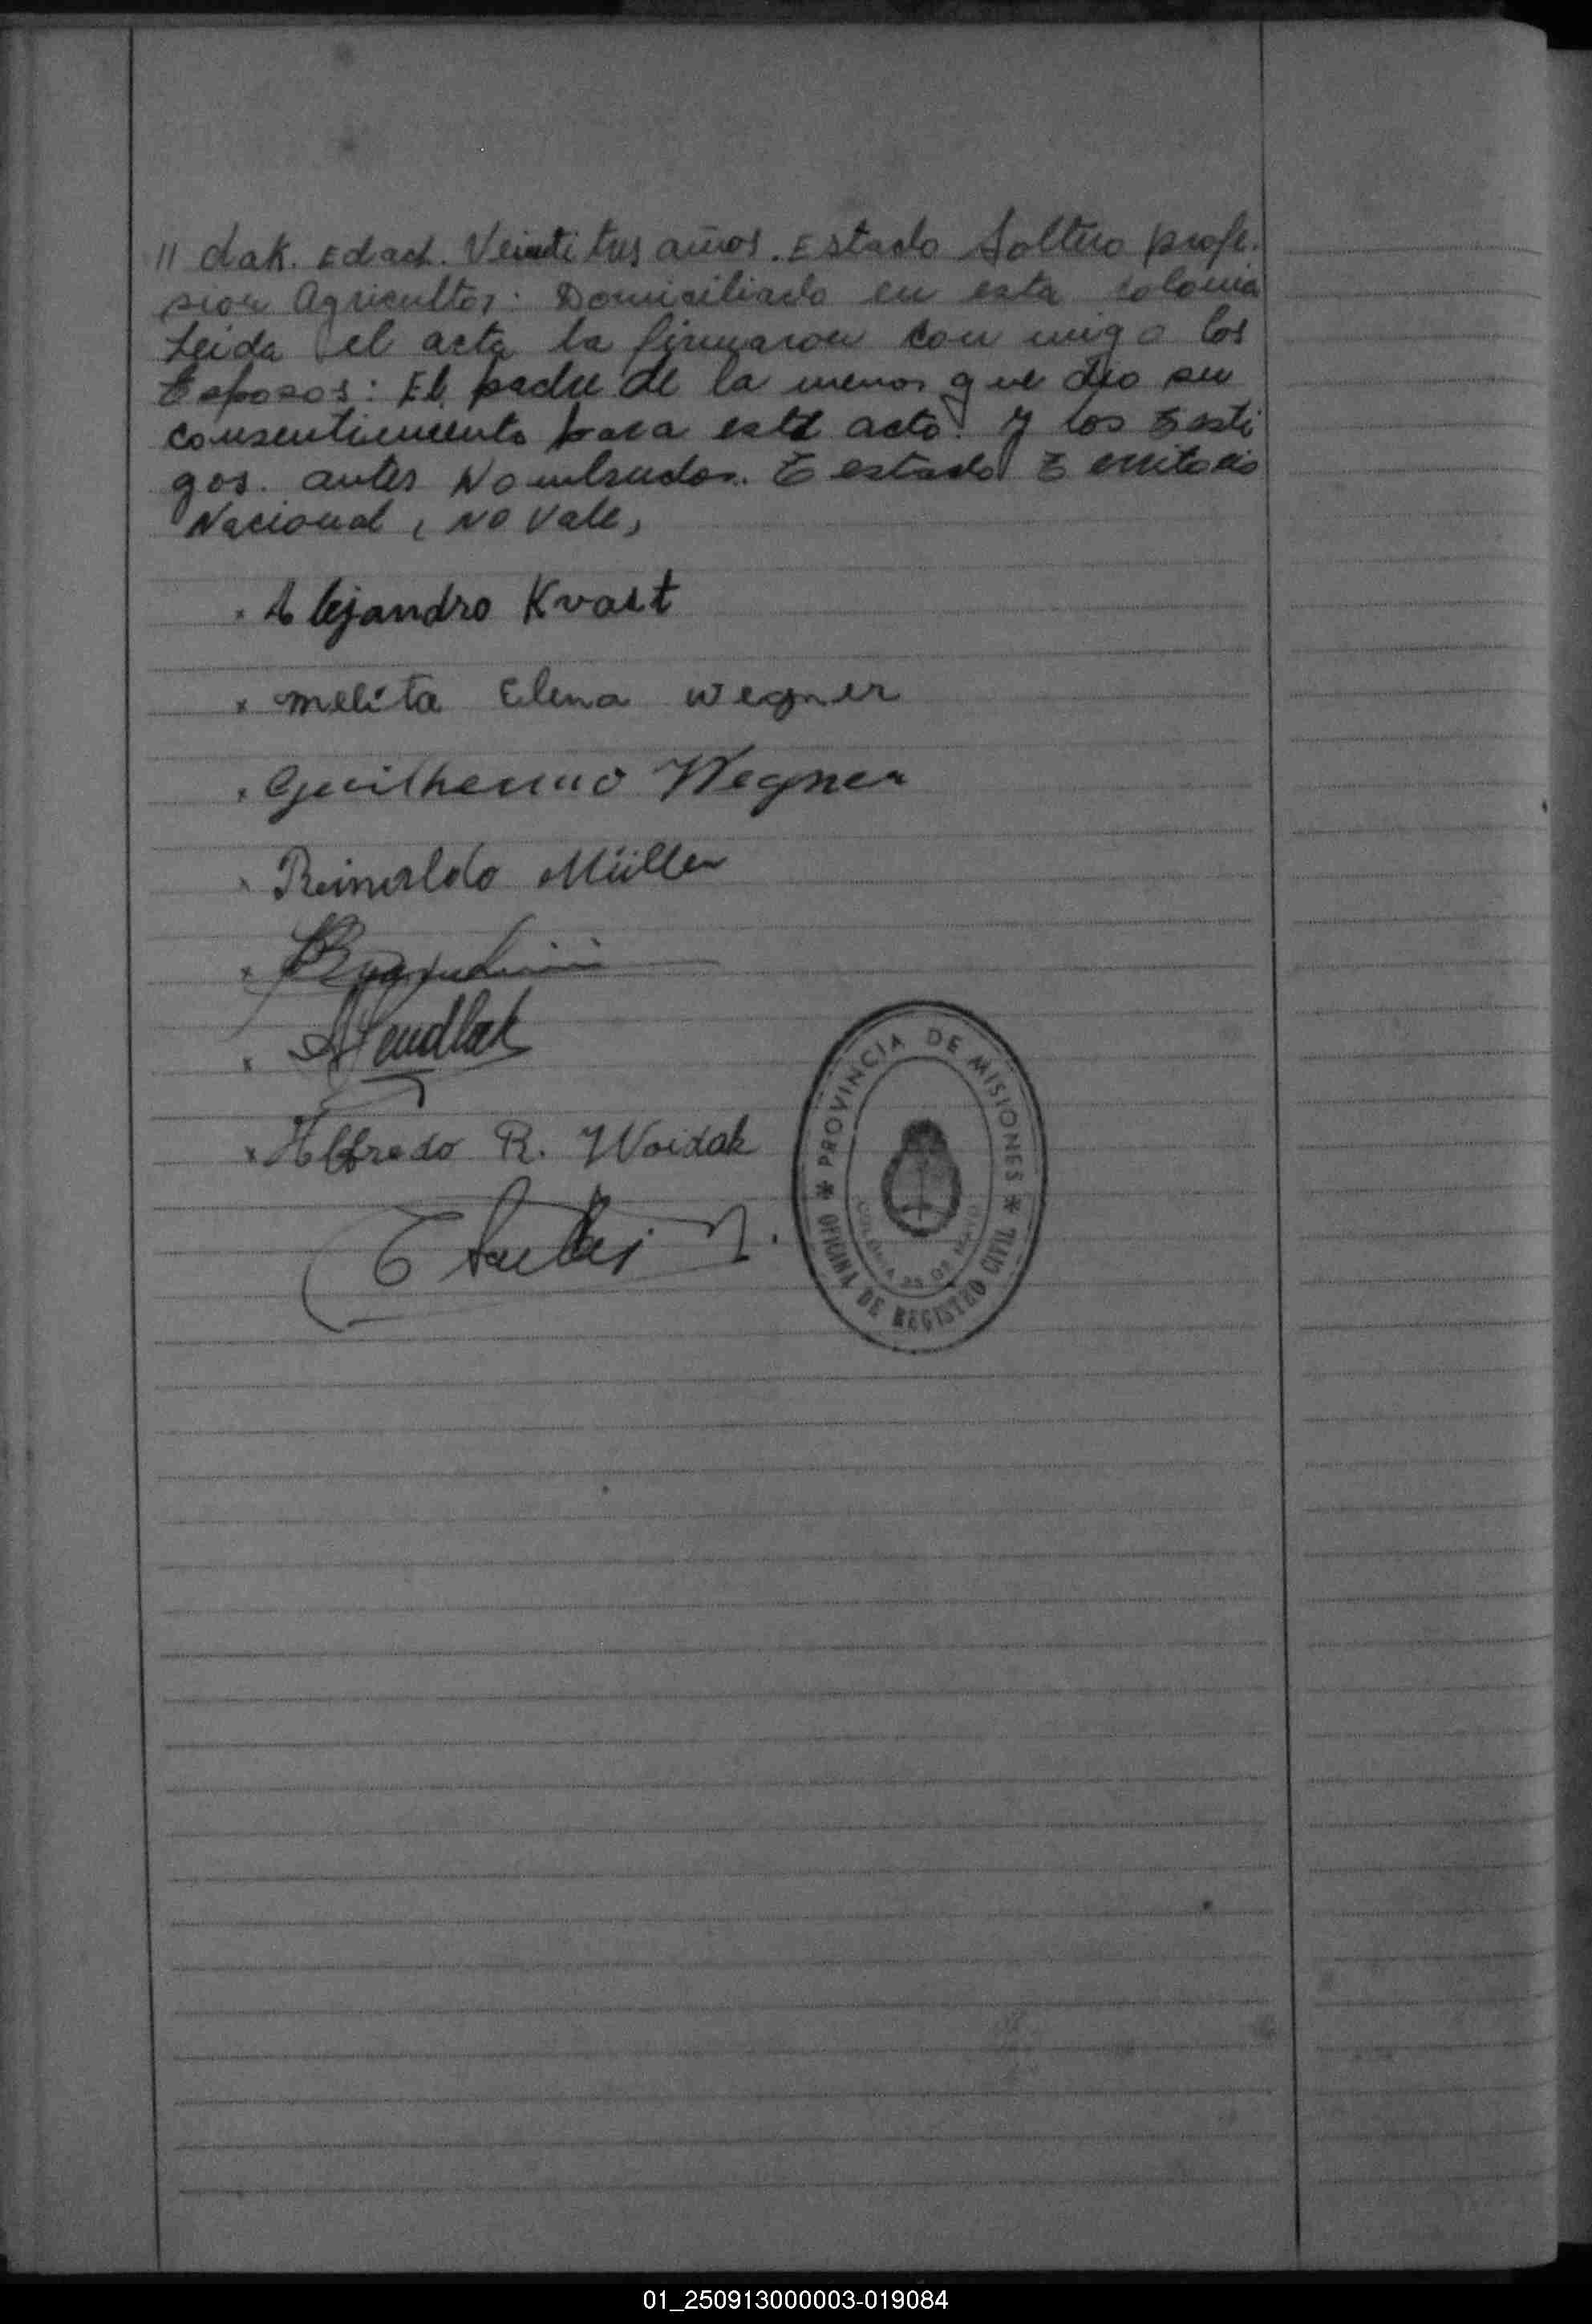 " dak. Edad. Veinti tres años. Estado Soltero profe-
sion Agricultor: Domiciliado en esta colonia
Leida el acta la firmaron con migo los
Esposos: El padre de la menor que dio su
consentimiento para este acto. y los Testi
gos. antes Nombrados. Testado Territorio
Nacional, No Vale,
x Alejandro Kvast
x melita Elena wegner
x Guilhermo Wegner
x Reinaldo Müller
x
x
x Alfredo R. Woidak
PROVINCIA DE MISIONES
COLONIA 25 DE MAYO
OFICINA DE REGISTRO CIVIL
01_250913000003-019084